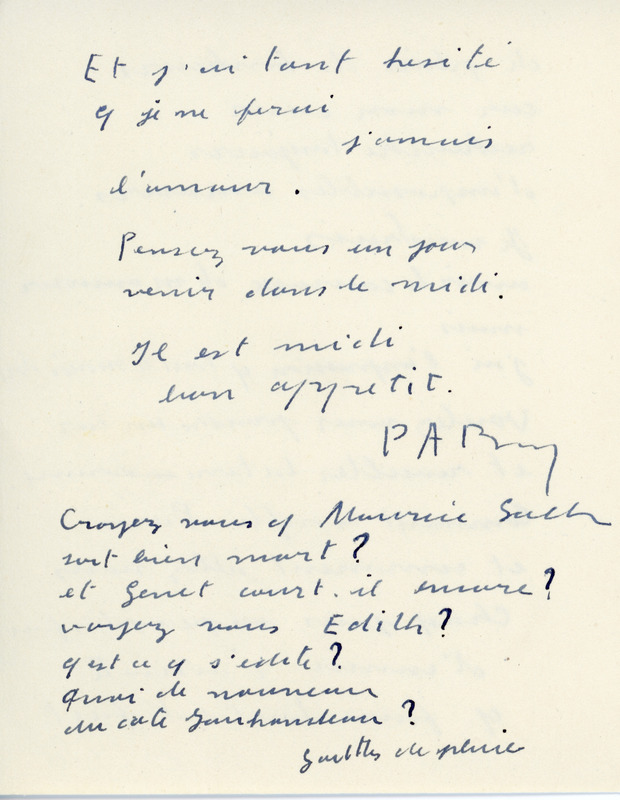 Et j'ai tant hesité
q je ne ferai
jamais
l'amour.
Pensez vous un jour
venir dans le midi.
Il est midi
bon appretit.
PAB
Croyez vous q Maurice
soit bien mort ?
et Genet court-il encore ?
voyez vous Edith ?
qest ce q s'edite ?
Quoi de nouveau
du coté Jouhandeau ?
de pluie